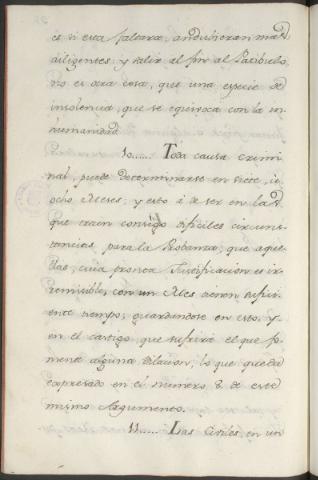 es si esta faltara, andubieran mas
diligentes; y salir al fin al Patibulo,
no es otra cosa, que una especie de
insolencia, que se equivoca con la in-
humanidad.
10...... Toda causa crimi-
nal puede determinarse en siete, ù
ocho Meses; y esto à de ser en las
que traen contigo dificiles circuns-
tancias para la Probanza; que aque-
llas, cuia pronta Justificacion es ir-
remisible, con un Mes tienen sufici-
ente tiempo; guardandose en esto, y
en el castigo, que sufrirà el que fo-
mente alguna dilacion, lo que queda
expresado en el numero 8 de este
mismo Argumento.
11...... Las Civiles, en un